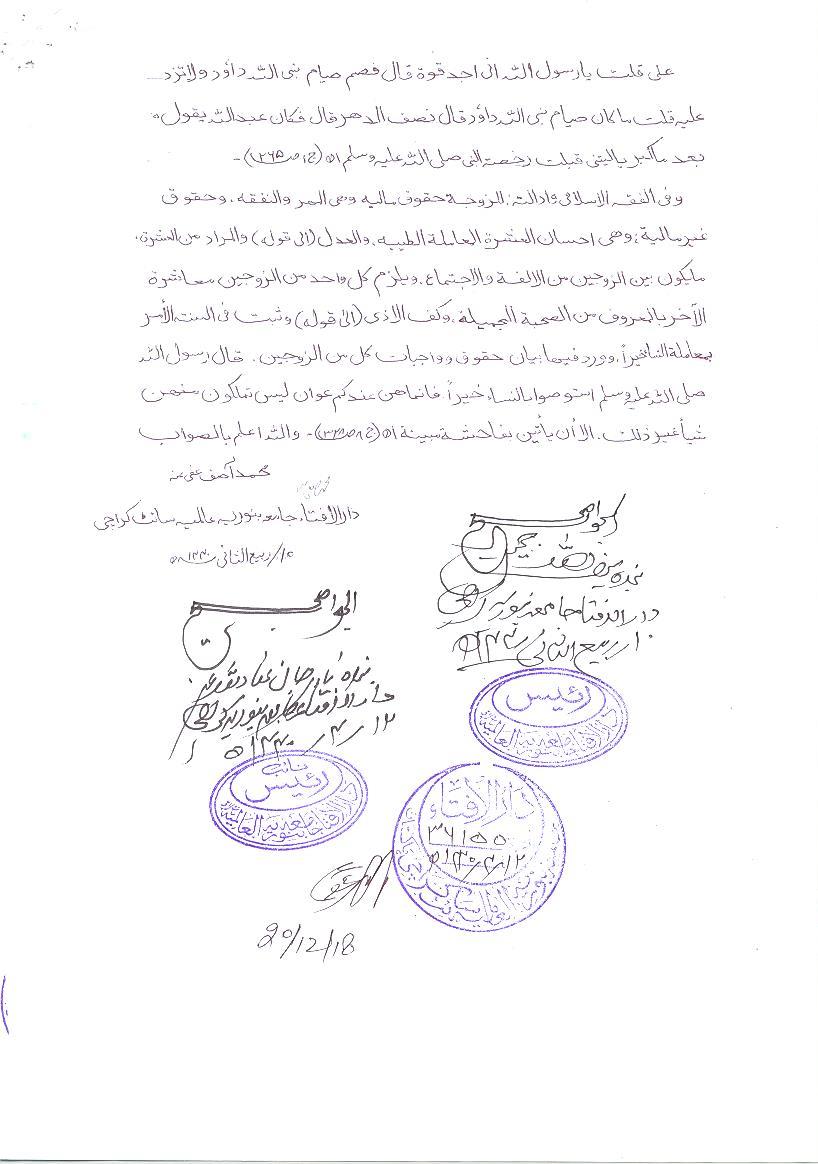 علی قلت یا رسول اللہ انی اجد قوة قال فصم صیام نبی اللہ داؤد ولا تزد
علیہ قلت ما کان صیام نبی اللہ داؤد قال نصف الدھر قال فکان عبد اللہ یقول
بعد ما کبر یا لیتنی قبلت رخصة النبی صلی اللہ علیہ وسلم اھ (ج۱ ص۲۶۵)۔
وفی الفقہ الاسلامی وادلتہ: للزوجة حقوق مالیہ وھی المھر والنفقہ، وحقوق
غیر مالیة: وھی احسان العشرة المعاملة الطیبہ، والعدل (الی قولہ) والمراد من العشرة،
مایکون بین الزوجین من الالفة والاجتماع، ویلزم کل واحد من الزوجین معاشرة
الآخر بالمعروف من الصحبة الجمیلة، وکف الاذی (الی قولہ) وثبت فی السنة الأمر
بمعاملة النسا خیراً، وورد فیھا بیان حقوق وواجبات کل من الزوجین، قال رسول اللہ
صلی اللہ علیہ وسلم استوصوا بالنساء خیراً، فانما ھن عندکم عوان لیس تملکون منھن
شیأ غیر ذلک، الا أن یأتین بفاحشة مبینة اھ (ج۸ ص۳۲۷)۔ واللہ اعلم بالصواب
محمد آصف عفی عنہ
دار الافتاء جامعہ بنوریہ عالمیہ سائٹ کراچی
۱۰/ربیع الثانی ۱۴۴۰ھ
الجواب صحیح
بندہ
دار الافتاء جامعہ بنوریہ
۱۰ ربیع الثانی ۱۴۴۰ھ
رئیس
دار الافتاء جامعہ بنوریہ العالمیہ
الجواب صحیح
بندہ
دار الافتاء جامعہ بنوریہ کراچی
۱۲/۴/۱۴۴۰ھ
نائب
رئیس
دار الافتاء جامعہ بنوریہ العالمیہ
دار الافتاء
۳۶۱۵۵
20/12/18